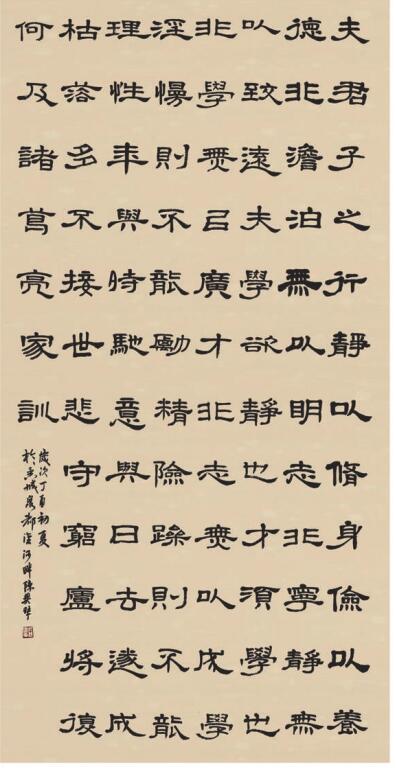 夫君子之行靜以脩身儉以養
德非澹泊無以明志非寧靜無
以致遠夫學欲靜也才須學也
非學無㠯廣才非志無以成學
淫慢則不能勵精險躁則不能
理性年與時馳意與日去遂成
枯落多不接世悲守窮廬將復
何及諸葛亮家訓
歲次丁酉初夏
於 城 都 河畔陳